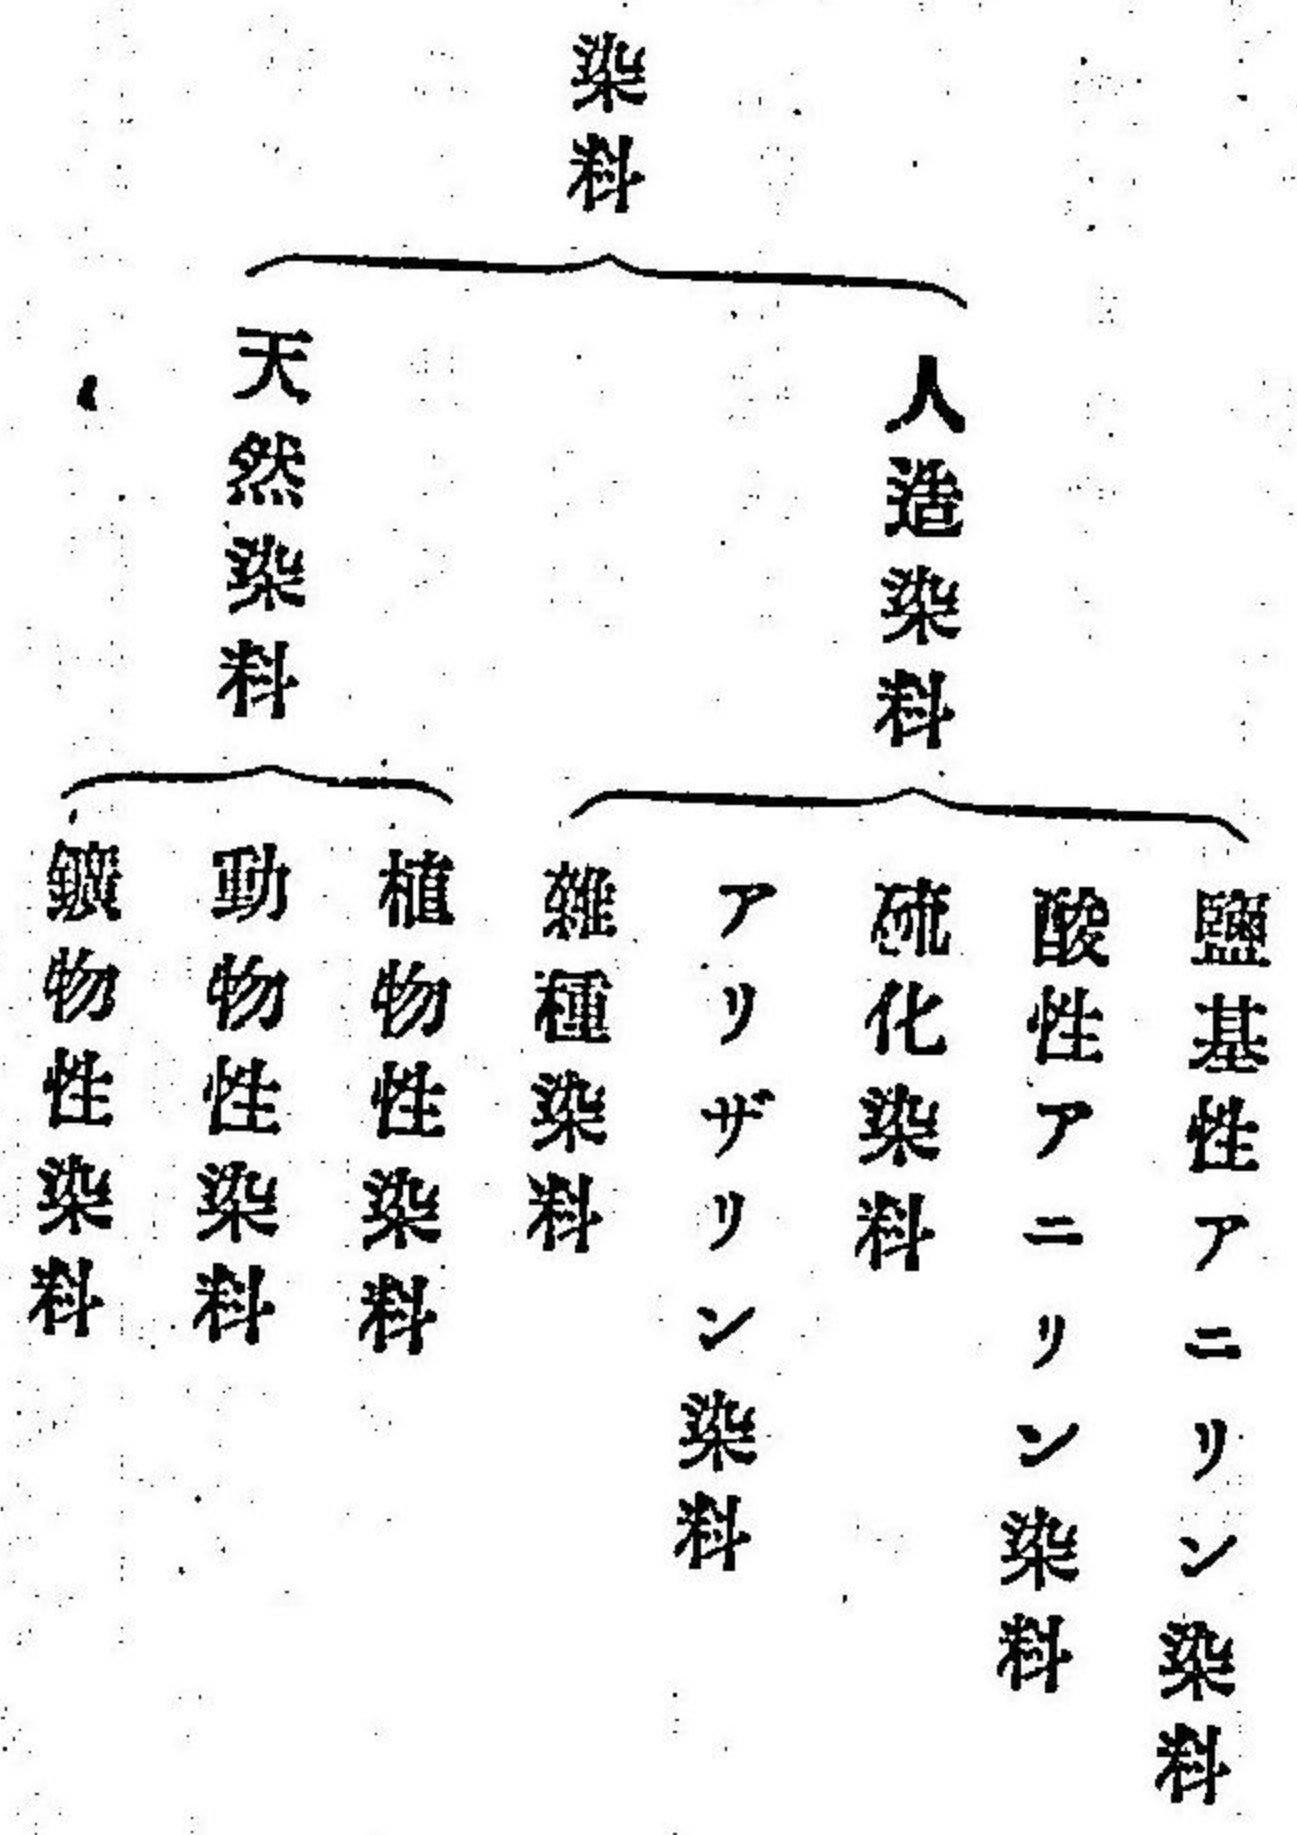 染料
人造染料
鹽基性アニリン染料
酸性アニリン染料
硫化染料
アリザリン染料
雜種染料
天然染料
植物性染料
動物性染料
鑛物性染料